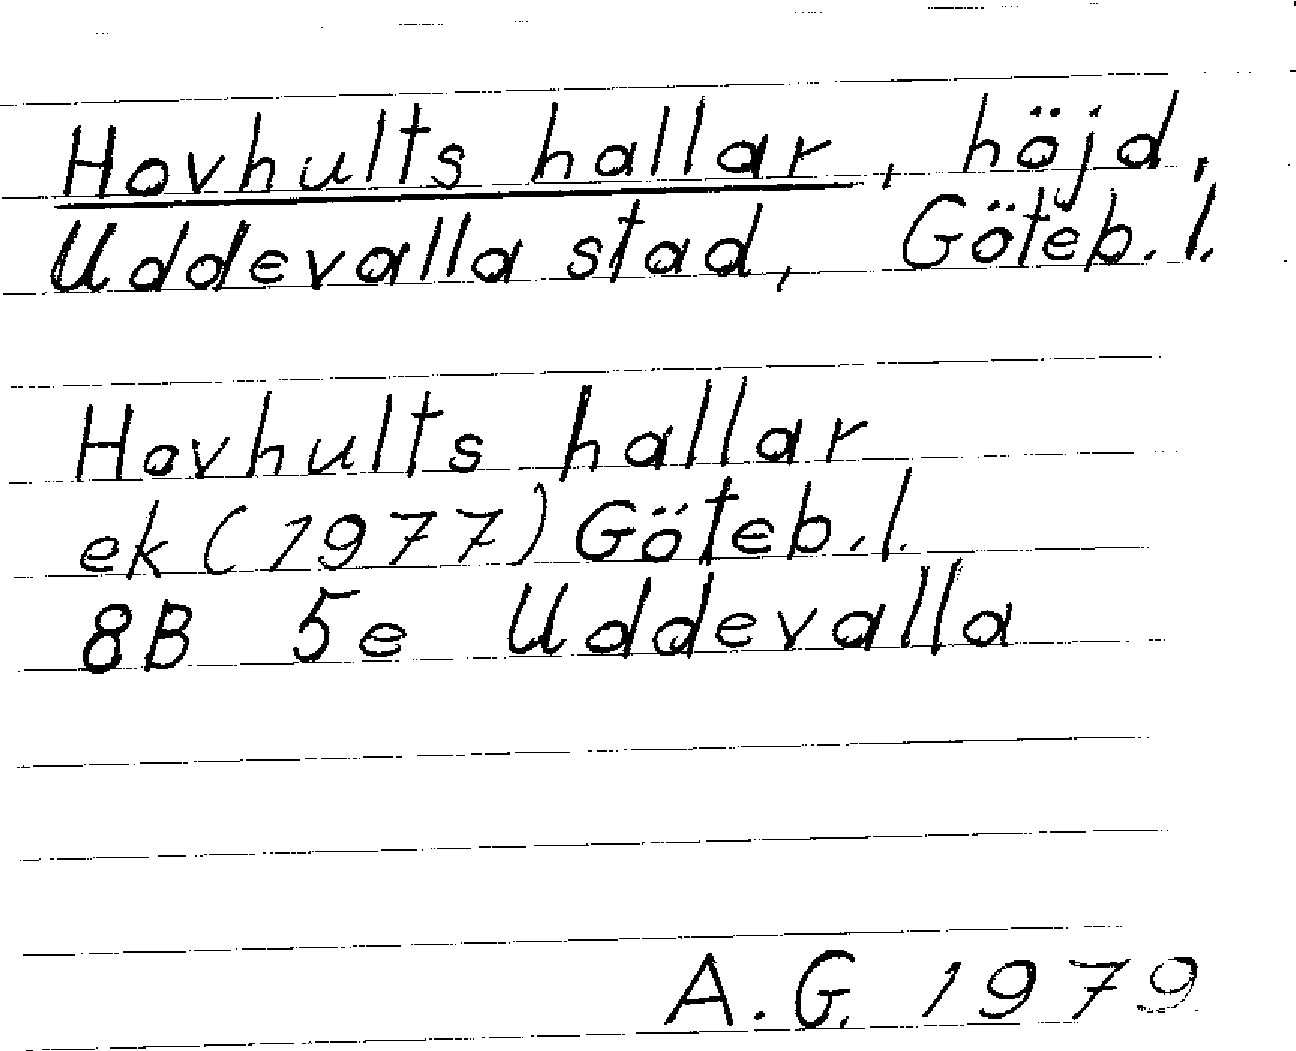 Hovhults hallar, höjd,
Uddevalla stad, Göteb. l.
Hovhults hallar
ek (1977) Göteb. l.
8B 5e Uddevalla
A. G. 1979